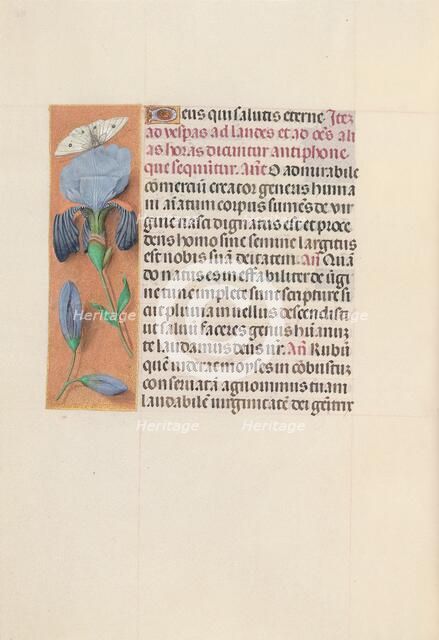 Deus qui salutis eterne. Itez
ad vespas ad laudes et ad oēs ali
as horas dicuntur antiphone
que sequntur. Añe O admirabile
cōmerciū creator generis huma
ni aīatum corpus sumēs de vir
gine nasci dignatus est et proce
dens homo sine semine largitus
est nobis suā deitatem. Añ Quā
do natus es ineffabiliter de v̄gi
ne tūc implete sunt scripture si
cut pluuia in vellus descendisti
ut saluū faceres genus hūanū
te laudamus deus nr̄. Añ Rubū
quē viderat moyses incōbustū
conseruatā agnouimus tuam
laudabilē uirginitatē dei genitrix
Heritage
Heritage
Heritage
Heritage
Heritage